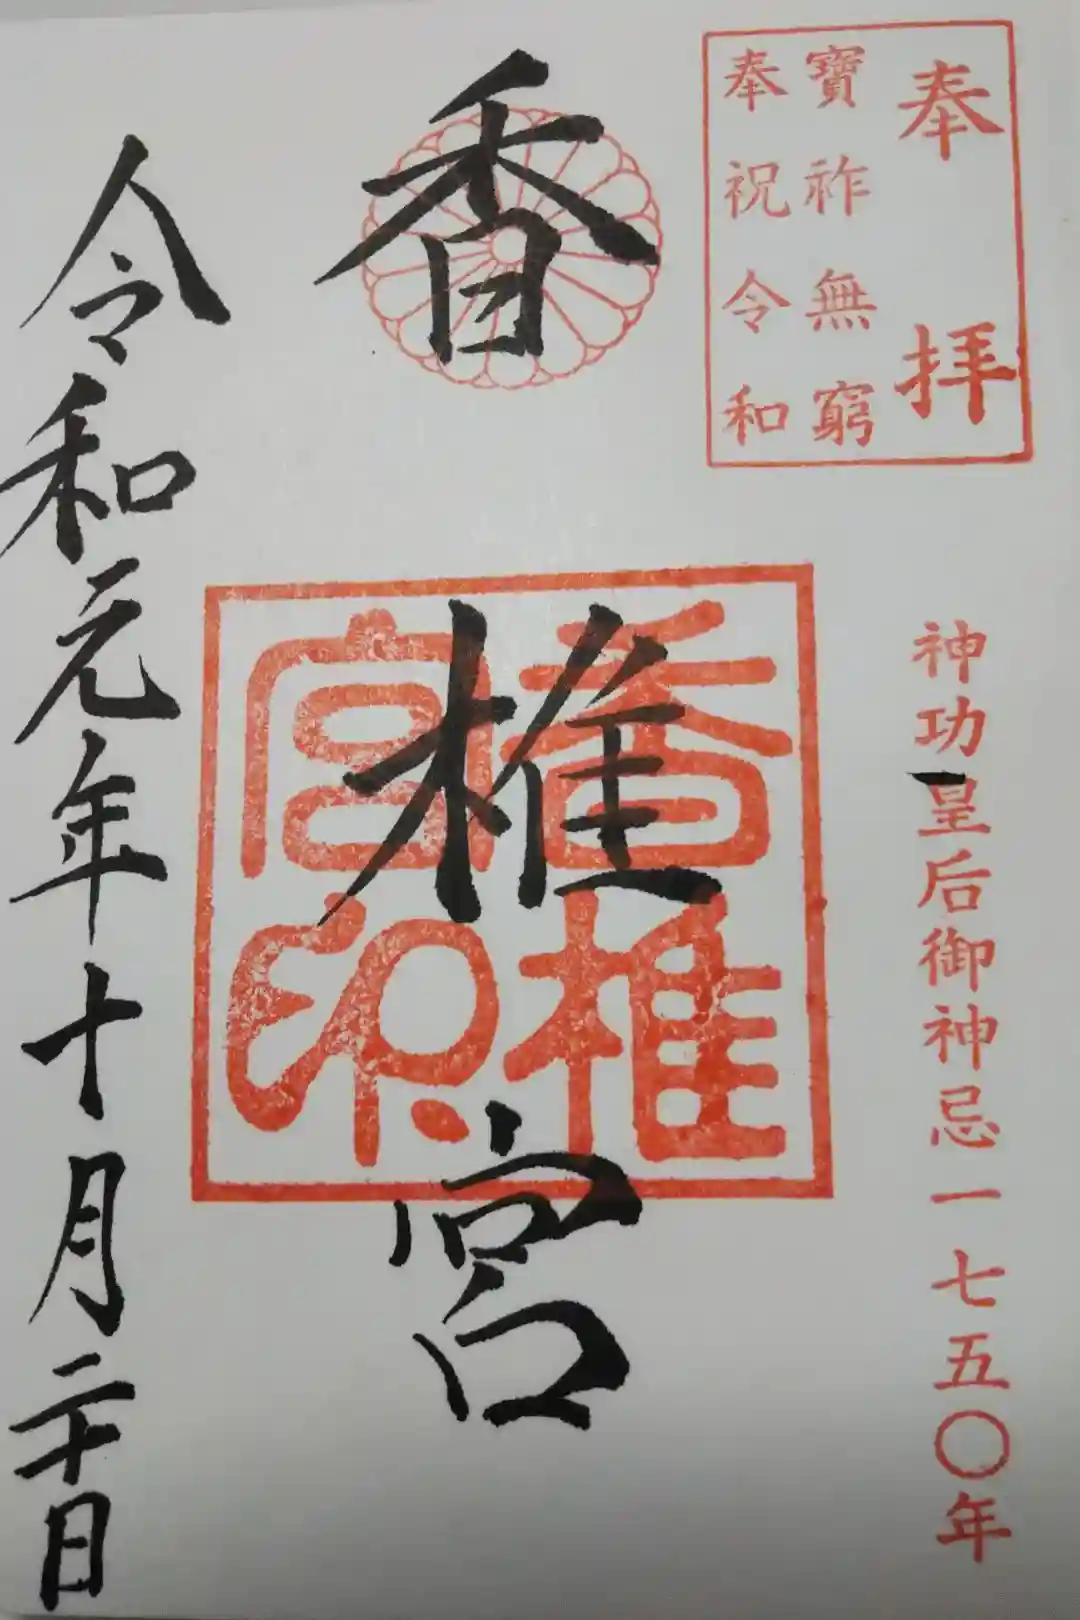 奉拝
寶祚無窮
奉祝令和
神功皇后御神忌一七五〇年
香椎宮
香椎
宮印
令和元年十月二十日